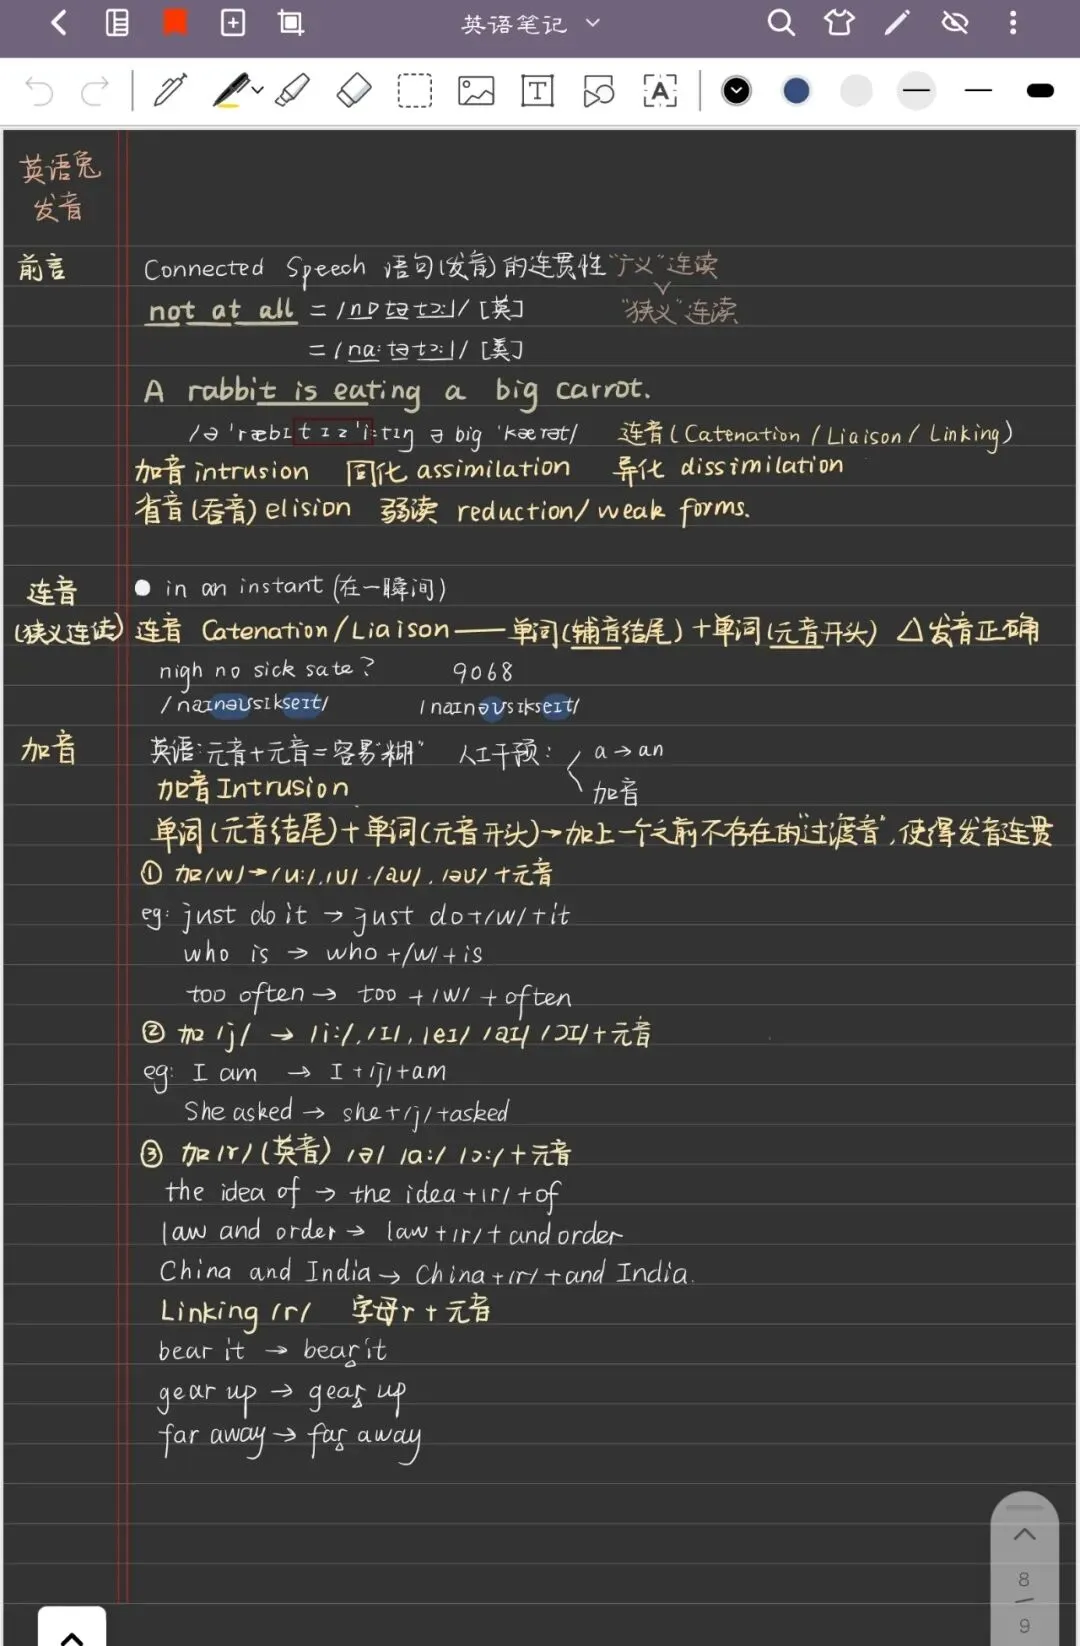 英语笔记
英语兔
发音
前言
Connected Speech 语句(发音)的连贯性 "广义"连读
not at all = /nɒ tə tɔ:l/ [英]
"狭义"连读
= /na: tə tɔ:l/ [美]
A rabbit is eating a big carrot.
/ə 'ræbɪ t ɪ z 'i:tɪŋ ə big 'kærət/ 连音(Catenation/Liaison/Linking)
加音 intrusion 同化 assimilation 异化 dissimilation
省音(吞音) elision 弱读 reduction/weak forms.
连音
(狭义连读)
● in an instant (在一瞬间)
连音 Catenation/Liaison——单词(辅音结尾)+单词(元音开头) △发音正确
nigh no sick sate? 9068
/naɪnəʊsɪkseɪt/ /naɪnəʊsɪkseɪt/
加音
英语:元音+元音=容易"糊" 人工干预: a→an
加音
加音 Intrusion
单词(元音结尾)+单词(元音开头)→加上一个之前不存在的"过渡音",使得发音连贯
① 加/w/→/u:/,/ʊ/./aʊ/./əʊ/+元音
eg: just do it → just do+/w/+it
who is → who+/w/+is
too often → too +/w/ + often
② 加/j/ → /i:/,/ɪ/,/eɪ/ /aɪ/ /ɔɪ/+元音
eg: I am → I+/j/+am
She asked → she+/j/+asked
③ 加/r/(英音) /ə/ /ɑ:/ /ɔ:/+元音
the idea of → the idea+/r/+of
law and order → law+/r/+and order
China and India → China+/r/+and India.
Linking /r/ 字母r+元音
bear it → bear it
gear up → gear up
far away → far away
8
9